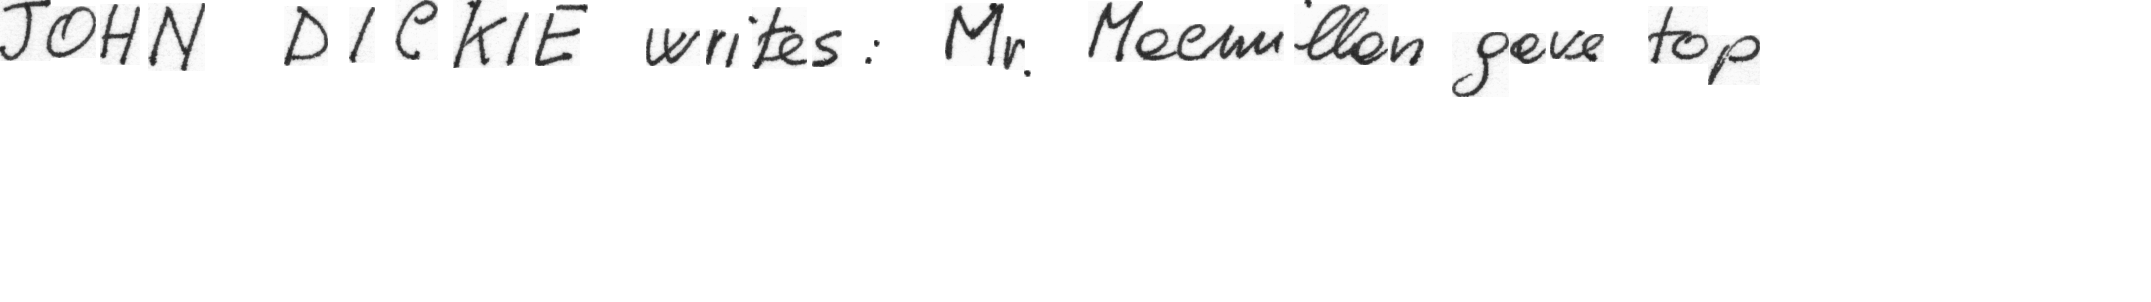 JOHN DICKIE writes: Mr. Macmillan gave top